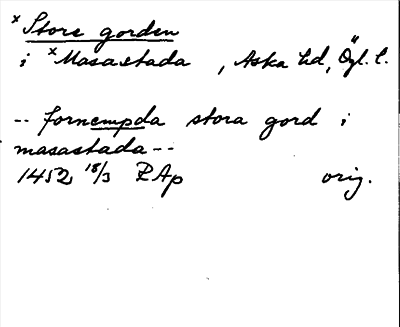 ˣStore gorden
i ˣMasastada, Aska hd, Ögl. l.
-- fornempda stora gord i
masastada --
1452 18/3 RAp orig.